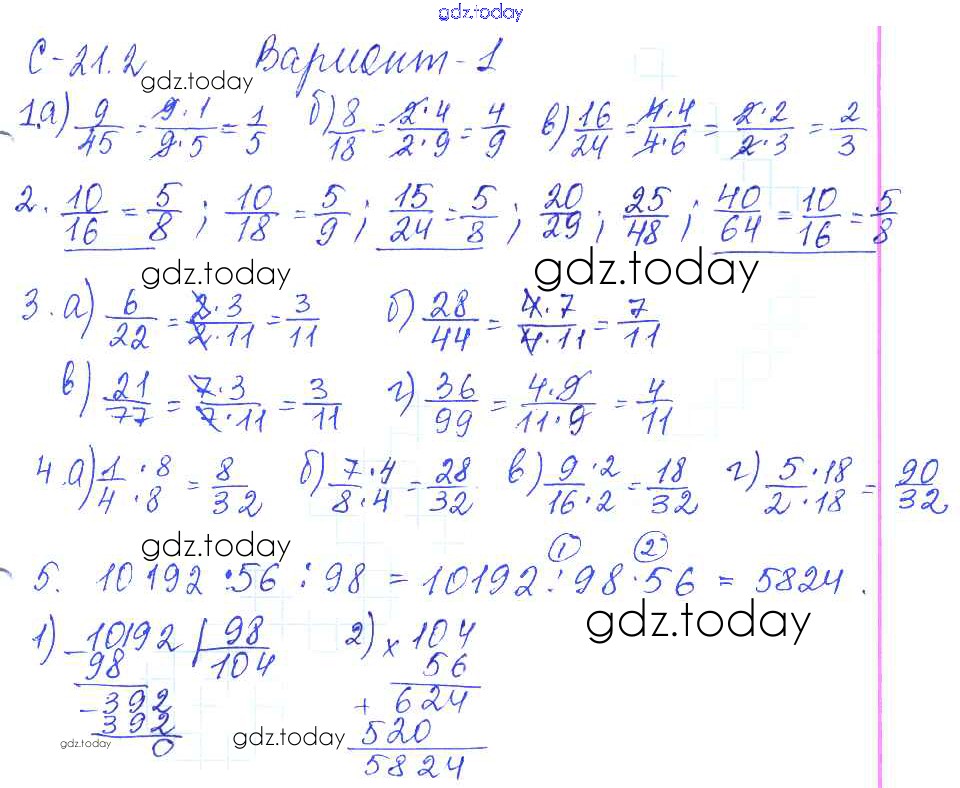 gdz.today
С-21.2 Вариант-1
gdz.today
1.а) 9/45 = 9·1/9·5 = 1/5 б) 8/18 = 2·4/2·9 = 4/9 в) 16/24 = 4·4/4·6 = 2·2/2·3 = 2/3
2. 10/16 = 5/8 ; 10/18 = 5/9 ; 15/24 = 5/8 ; 20/29 ; 25/48 ; 40/64 = 10/16 = 5/8
gdz.today gdz.today
3. а) 6/22 = 2·3/2·11 = 3/11 б) 28/44 = 4·7/4·11 = 7/11
в) 21/77 = 7·3/7·11 = 3/11 г) 36/99 = 4·9/11·9 = 4/11
gdz.today
4. а) 1·8/4·8 = 8/32 б) 7·4/8·4 = 28/32 в) 9·2/16·2 = 18/32 г) 5·18/2·18 = 90/32
gdz.today
① ②
5. 10192 · 56 : 98 = 10192 : 98 · 56 = 5824.
gdz.today
1) -10192 | 98 2) × 104
98 104 56
-392 + 624
392 520
0 5824
gdz.today gdz.today